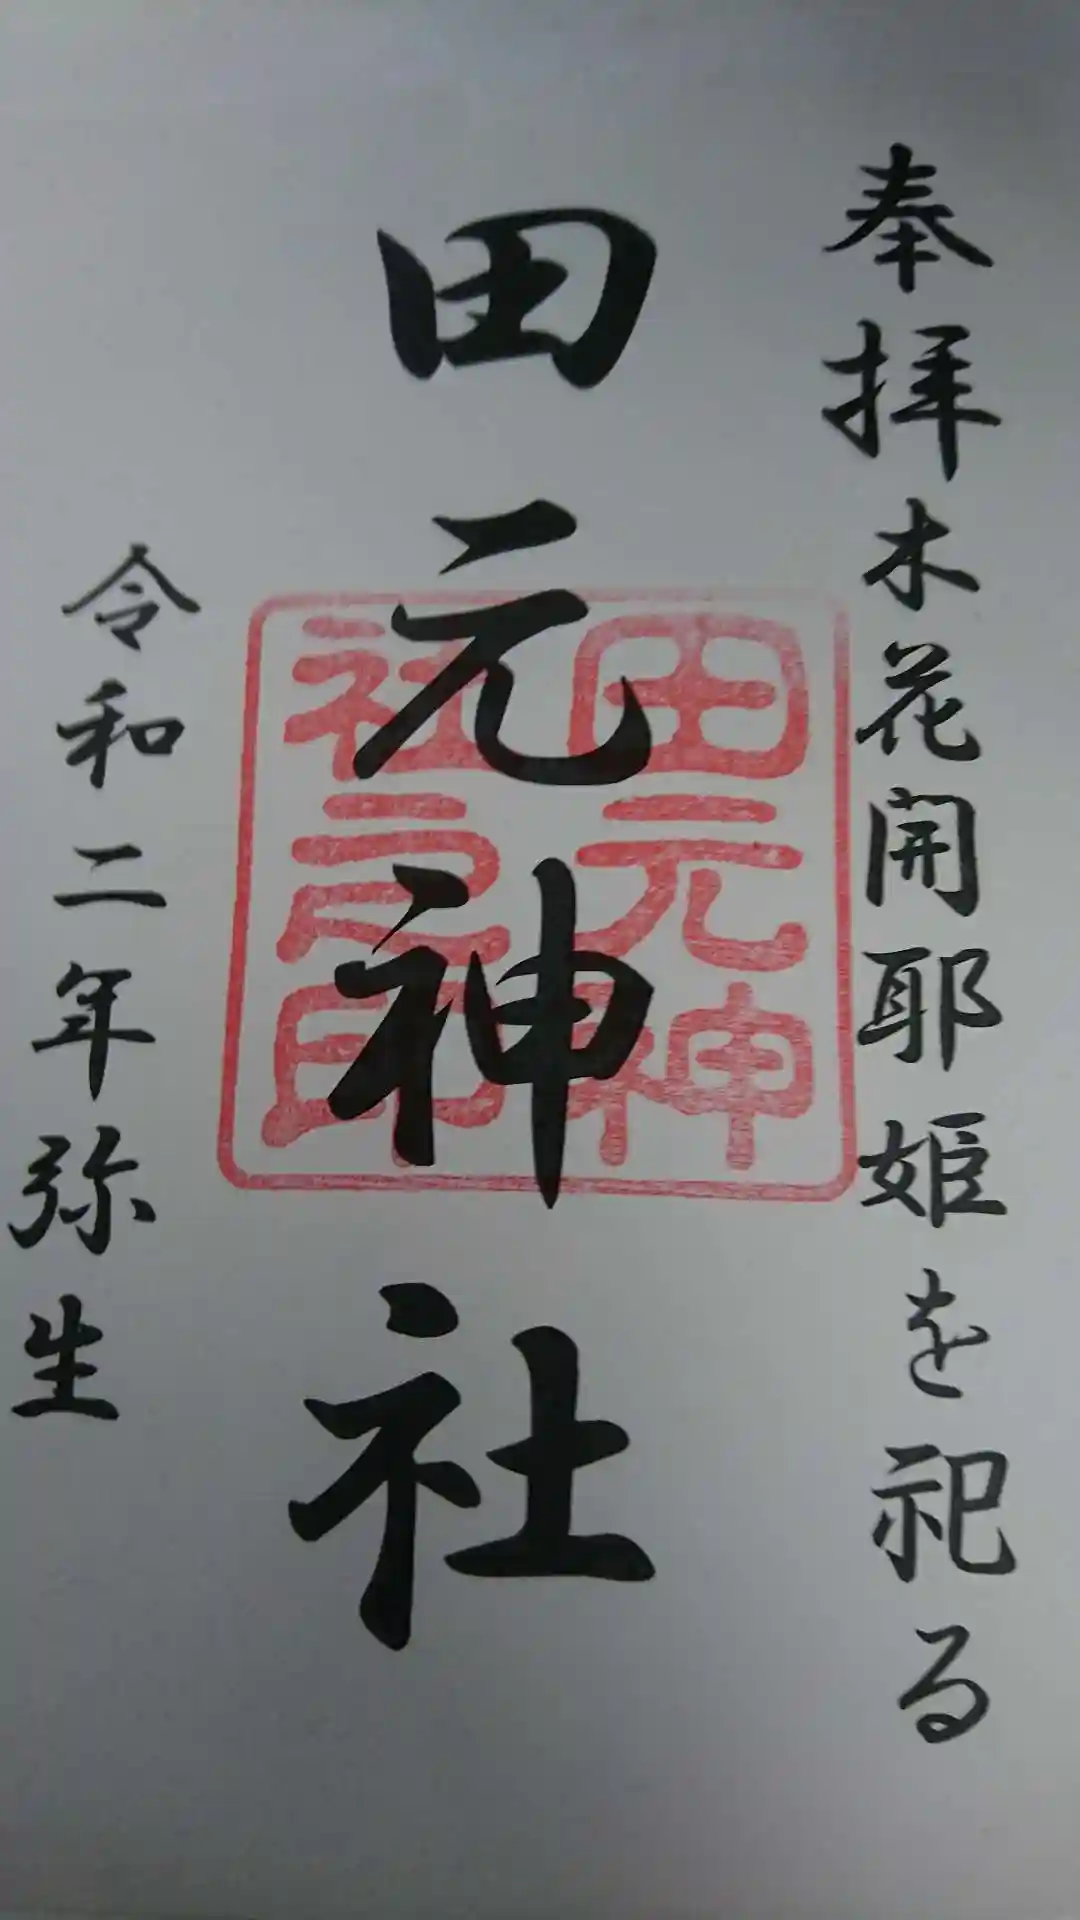 奉拝木花開耶姫を祀る
田元神社
田元神
社之印
令和二年弥生